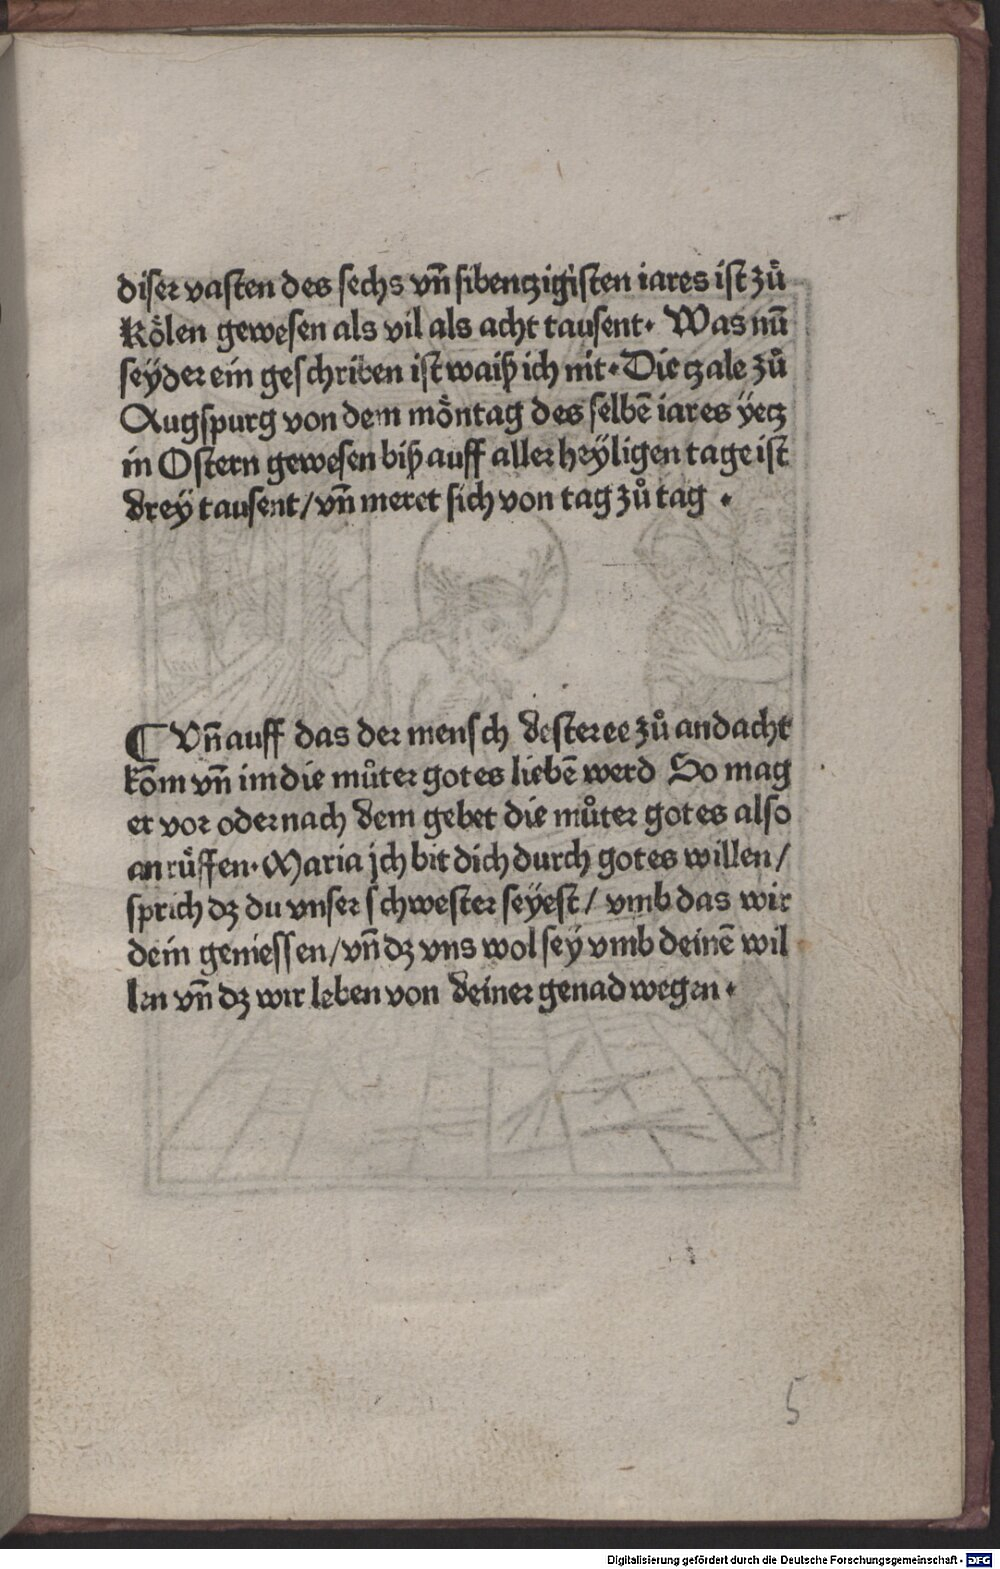 diser vasten des sechs vn̄ sibentzigisten iares ist zů
Kölen gewesen als vil als acht tausent· Was nū
seÿder ein geschriben ist waiß ich nit·Die tzale zů
Augspurg von dem möntag des selbē iares ÿetz
in Ostern gewesen biß auff aller heÿligen tage ist
dreÿ tausent/vn̄ meret sich von tag zů tag ·
¶ Vn̄ auff das der mensch dester ee zů andacht
kōm vn̄ im die můter gotes liebē werd So mag
er vor oder nach dem gebet die můter gotes also
an růffen·Maria jch bit dich durch gotes willen/
sprich dz du vnser schwester seÿest/ vmb das wir
dein geniessen/vn̄ dz vns wol seÿ vmb deinē wil
len vn̄ dz wir leben von deiner genad wegen·
5
Digitalisierung gefördert durch die Deutsche Forschungsgemeinschaft - DFG